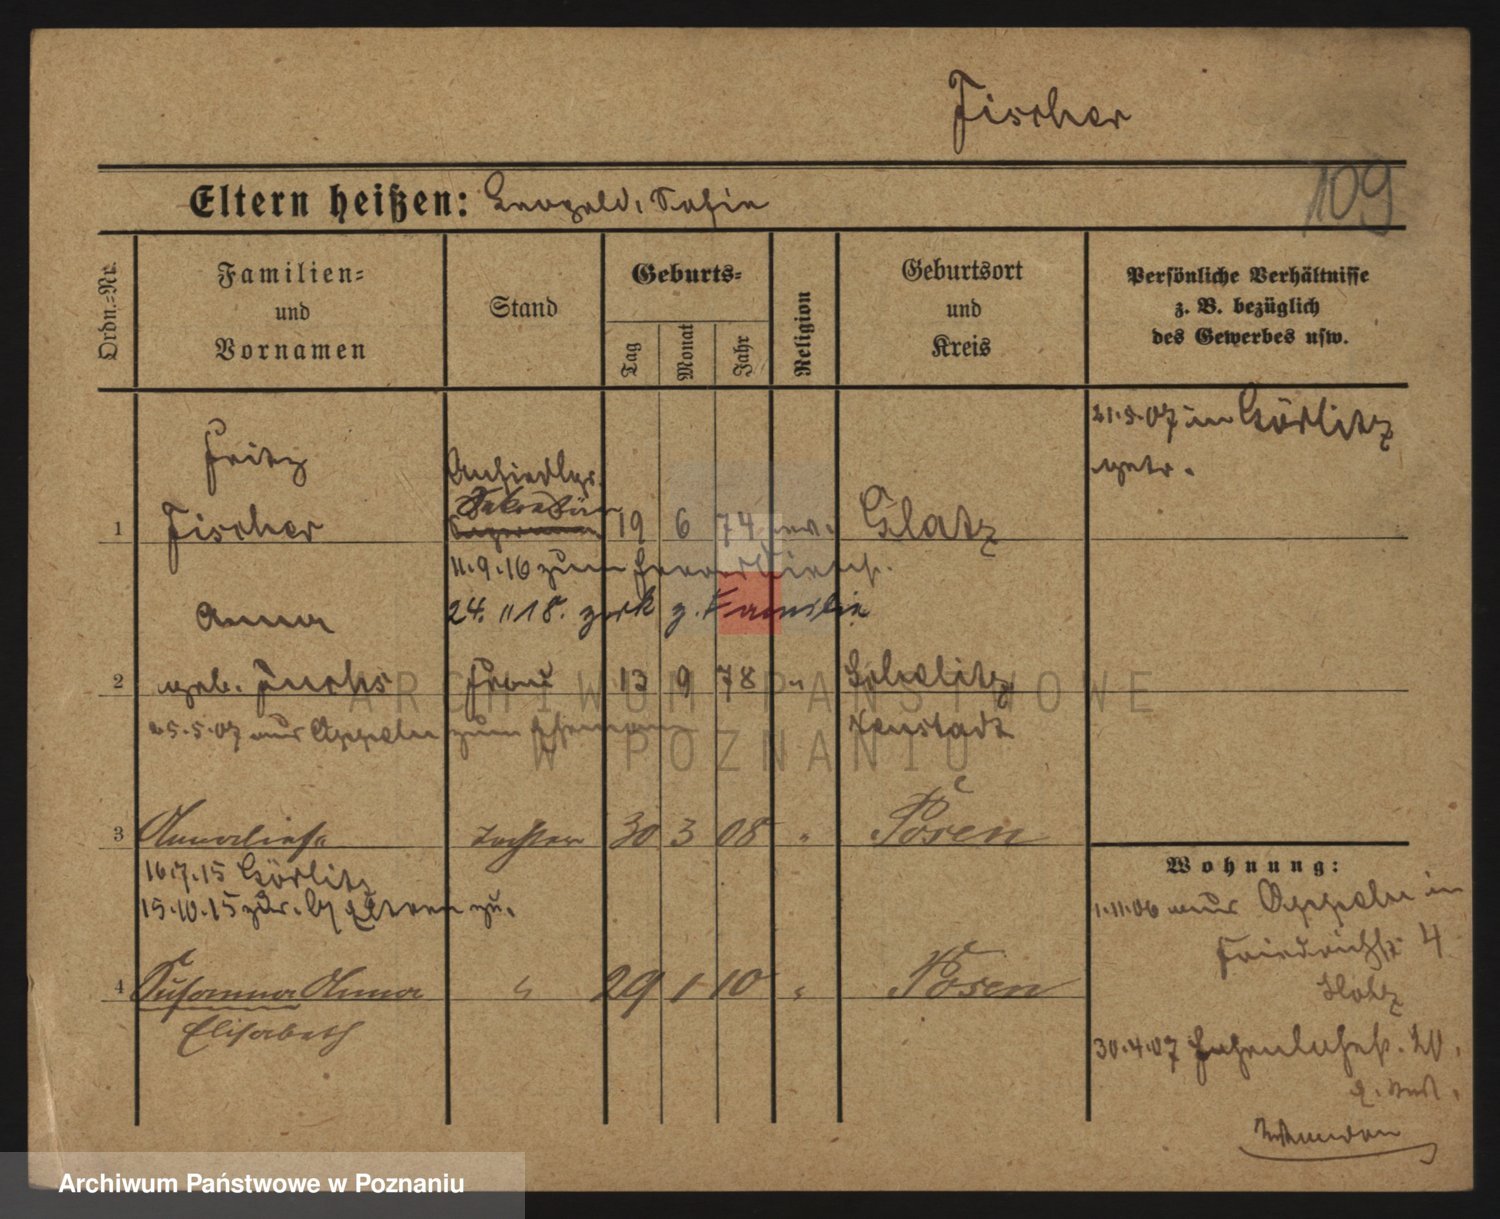 Fischer
109
Eltern heißen: Leopold, Sofie
Ordn.-Nr.
Familien-
und
Vornamen
Stand
Geburts-
Tag
Monat
Jahr
Religion
Geburtsort
und
Kreis
Persönliche Verhältnisse
z. B. bezüglich
des Gewerbes usw.
21.5.07 in Görlitz
getr.
Fritz
Ansiedlgs.
Sekretär
1 Fischer 19 6 74 ev. Glatz
11.9.16 zum Heeresdienst.
24. 11 18. zrk z. Familie
Anna
2 geb. Fuchs Frau 13 9 78 "
25.5.07 aus Oppeln zum Ehemann
Neustadt
3 Annaliese Tochter 30 3 08 " Posen
16.7.15 Görlitz
15.10.15 zur. Eltern zu.
4 Susanna Anna " 29 1 10 " Posen
Elisabeth
Wohnung:
1.11.06 aus Oppeln in
Friedrichstr 4
30.4.07 20.
ARCHIWUM PAŃSTWOWE
W POZNANIU
Archiwum Państwowe w Poznaniu